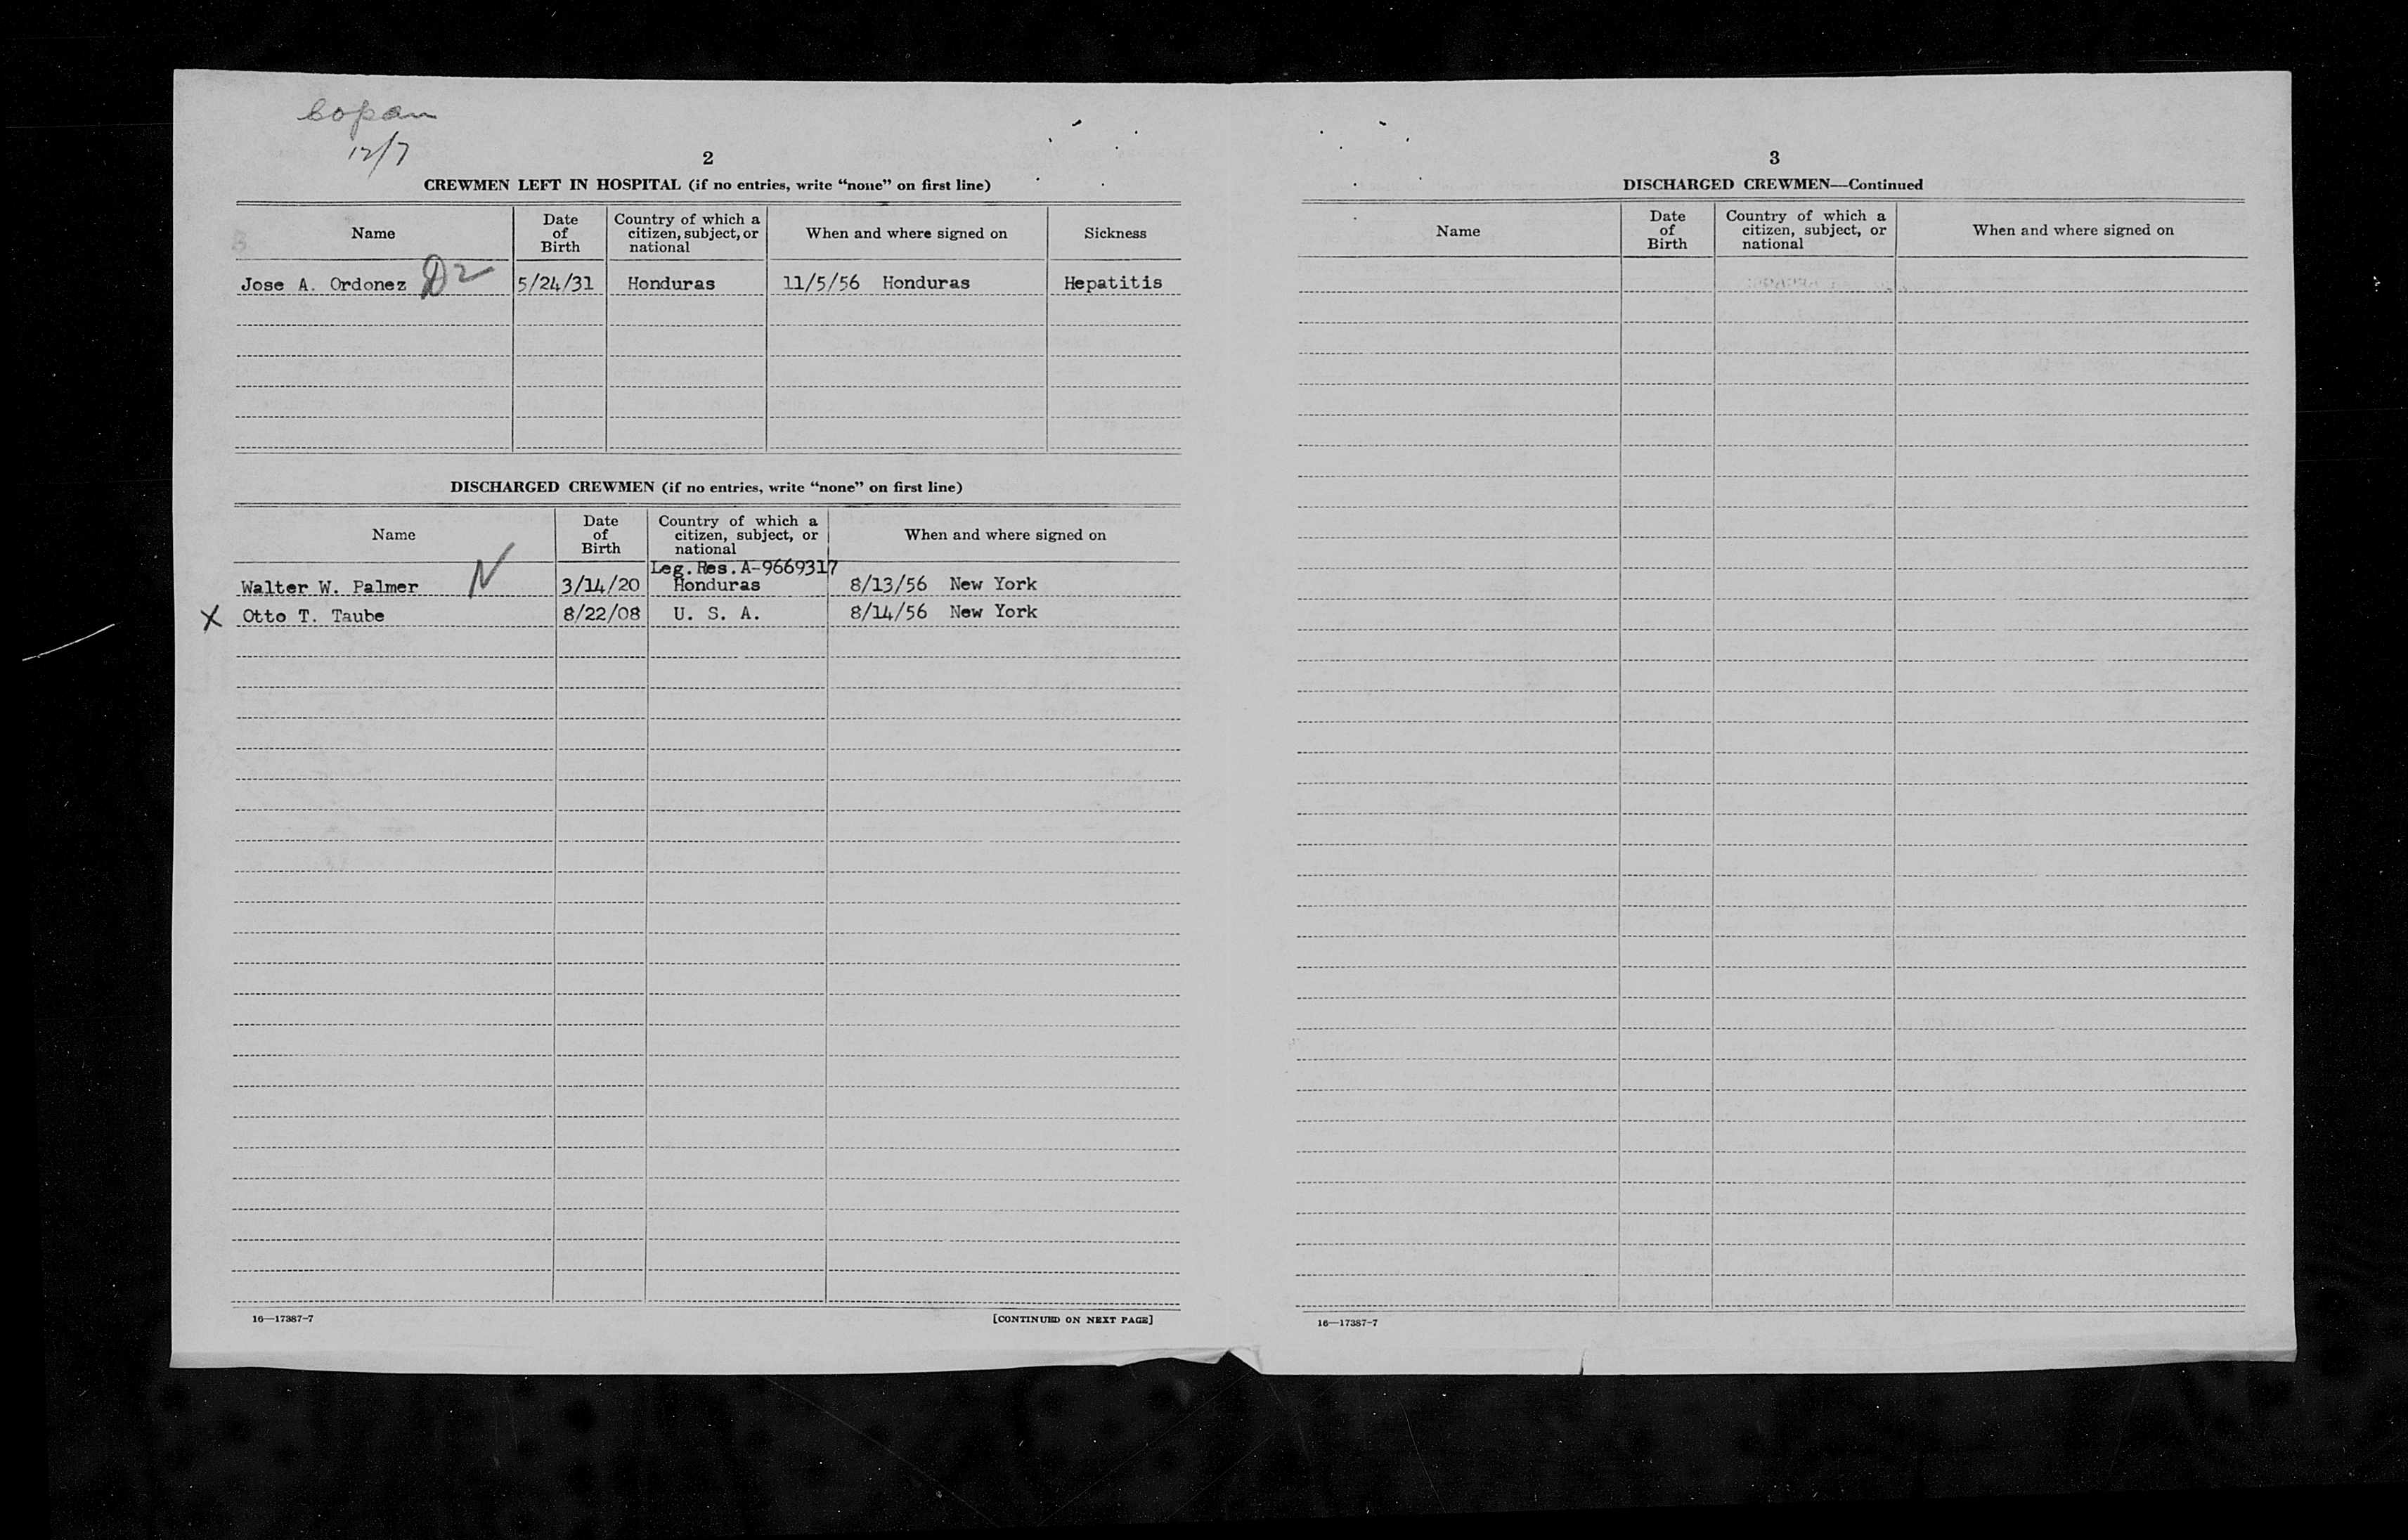 Copan
12/7
2
CREWMEN LEFT IN HOSPITAL (if no entries, write “none” on first line)
Name
Date of Birth
Country of which a citizen, subject, or national
When and where signed on
Sickness
Jose A. Ordonez D2 5/24/31 Honduras 11/5/56 Honduras Hepatitis
DISCHARGED CREWMEN (if no entries, write “none” on first line)
Name
Date of Birth
Country of which a citizen, subject, or national
When and where signed on
Leg. Res. A-9669317
Walter W. Palmer N 3/14/20 Honduras 8/13/56 New York
X Otto T. Taube 8/22/08 U. S. A. 8/14/56 New York
16—17387-7 [CONTINUED ON NEXT PAGE]
3
DISCHARGED CREWMEN—Continued
Name
Date of Birth
Country of which a citizen, subject, or national
When and where signed on
16—17387-7